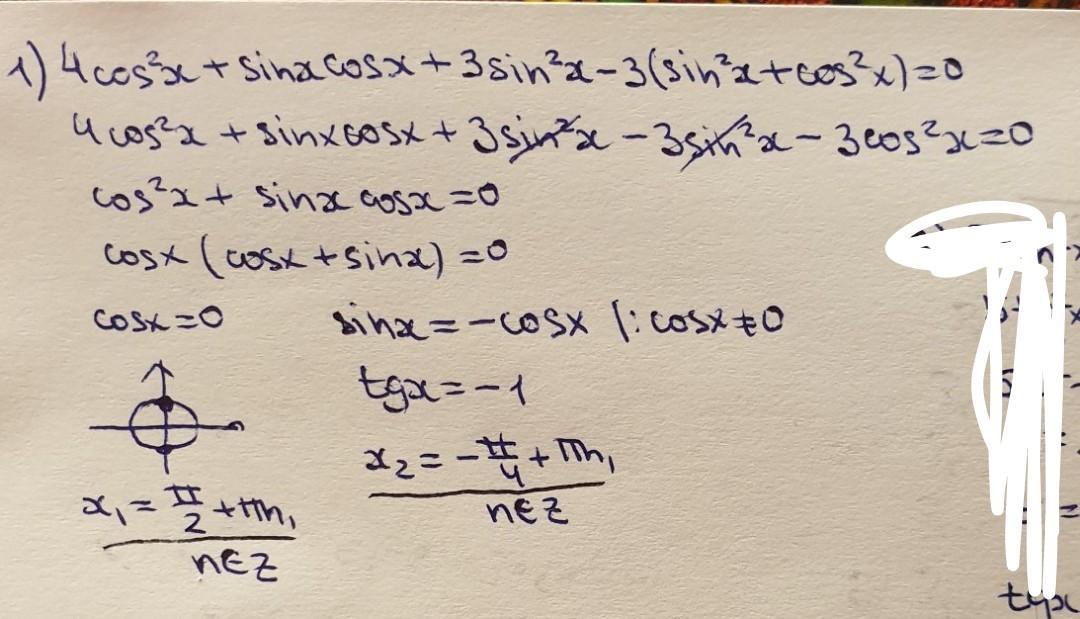 1) 4cos²x + sinx cosx + 3sin²x - 3(sin²x + cos²x) = 0
4cos²x + sinxcosx + 3sin²x - 3sin²x - 3cos²x = 0
cos²x + sinx cosx = 0
cosx (cosx + sinx) = 0
cosx = 0 sinx = -cosx |: cosx ≠ 0
tgx = -1
x₂ = -π/4 + πn,
n∈Z
x₁ = π/2 + πn,
n∈Z
tgx